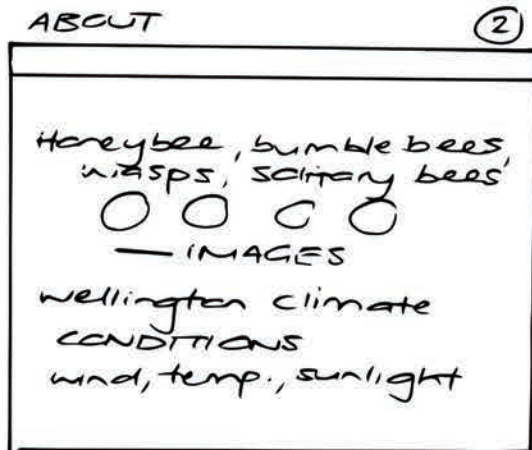 ABOUT 2
Honeybee, bumble bees,
wasps, solitary bees
— IMAGES
wellington climate
CONDITIONS
wind, temp., sunlight